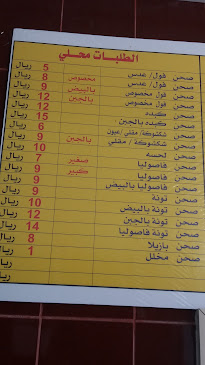 الطلبات محلي
صحن فول/ عدس 5 ريال
صحن فول/ عدس مخصوص 8 ريال
صحن فول مخصوص بالبيض 9 ريال
صحن فول مخصوص بالجبن 12 ريال
صحن كبده 12 ريال
صحن كبده بالجبن 15 ريال
صحن شكشوكة/ مقلي/عيون 6 ريال
صحن شكشوكة/ مقلي بالجبن 9 ريال
صحن لحسه 10 ريال
صحن فاصوليا صغير 7 ريال
صحن فاصوليا كبير 9 ريال
صحن فاصوليا بالبيض 9 ريال
صحن تونة 10 ريال
صحن تونة بالبيض 12 ريال
صحن تونة بالجبن 14 ريال
صحن تونة فاصوليا
صحن بازيلا 8 ريال
صحن مخلل 1 ريال